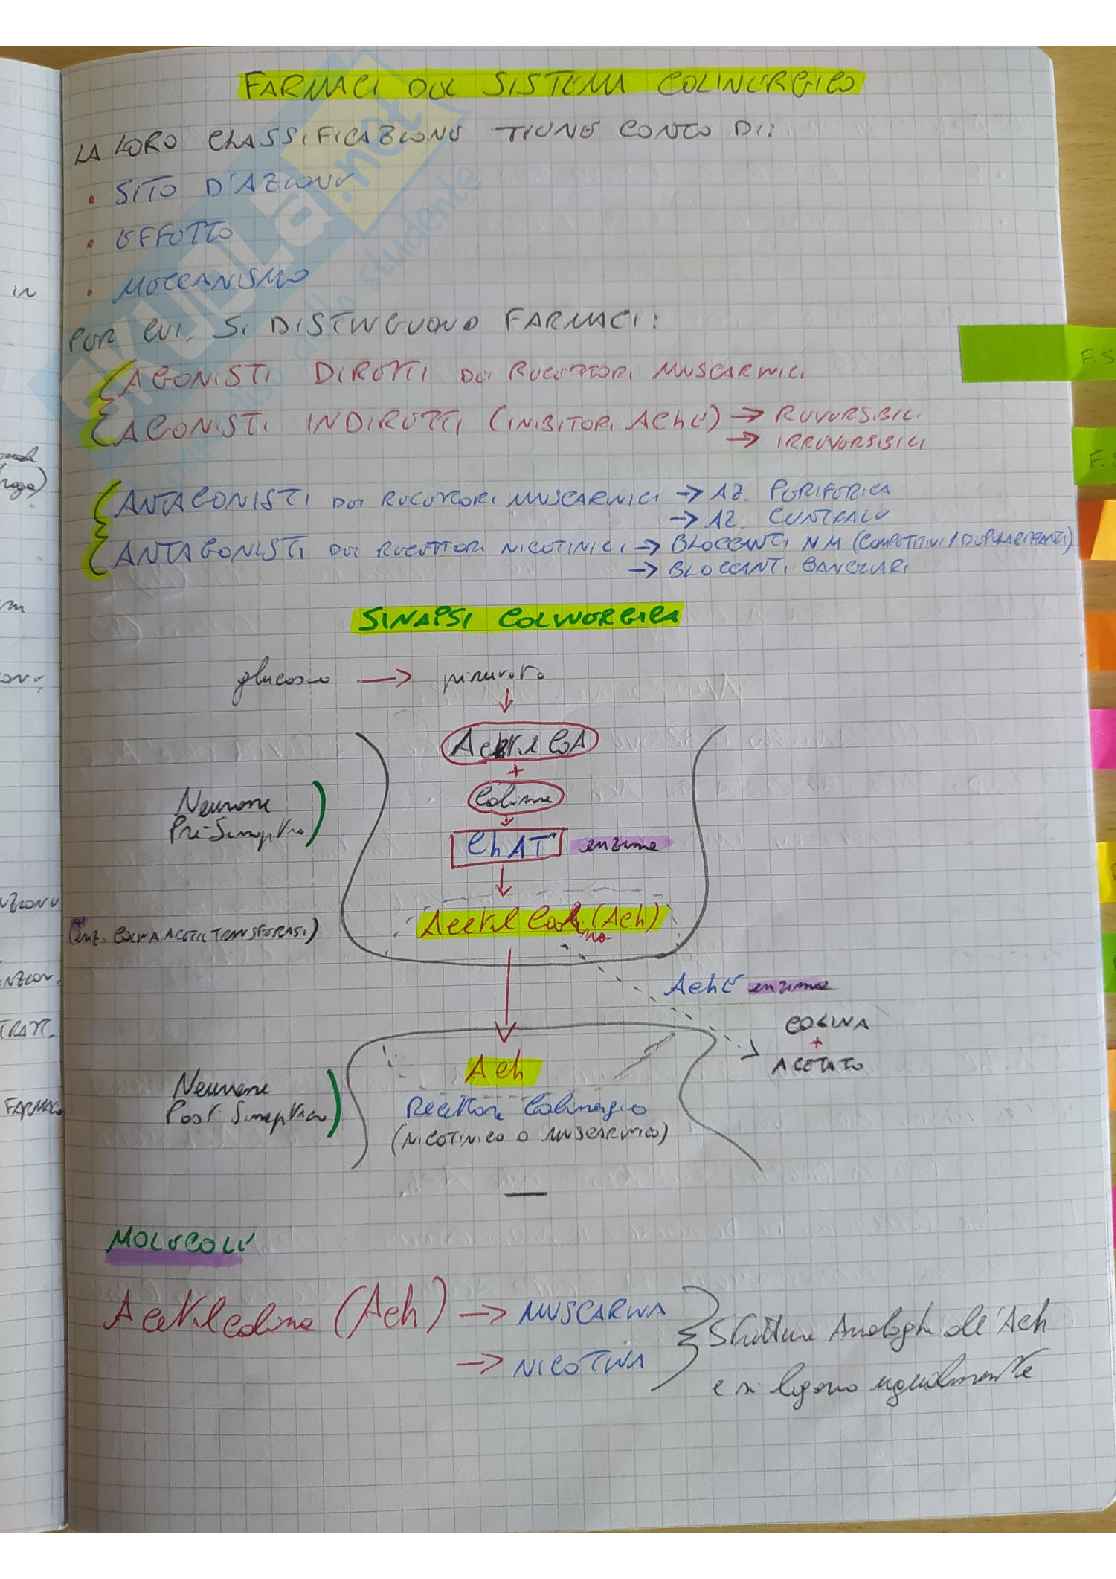 FARMACI DEL SISTEMA COLINERGICO
LA LORO CLASSIFICAZIONE TIENE CONTO DI:
• SITO D'AZIONE
• EFFETTO
• MECCANISMO
PER CUI, SI DISTINGUONO FARMACI:
AGONISTI DIRETTI DEI RECETTORI MUSCARINICI
AGONISTI INDIRETTI (INIBITORI AChE) → REVERSIBILI
→ IRREVERSIBILI
ANTAGONISTI DEI RECETTORI MUSCARNICI → AZ. PERIFERICA
→ AZ. CENTRALE
ANTAGONISTI DEI RECETTORI NICOTINICI → BLOCCANTI N.M (COMPETITIVI / DEPOLARIZZANTI)
→ BLOCCANTI GANGLIARI
SINAPSI COLINERGICA
glucosio → piruvato
Acetil CoA
+
Colina
Neurone
Pre-Sinaptico
ChAT enzima
Acetil Colina (Ach)
(enz. COLINA ACETIL TRANSFERASI)
AchE enzima
COLINA
+
ACETATO
Ach
Neurone
Post Sinaptico
Recettore Colinergico
(NICOTINICO O MUSCARINICO)
MOLECOLE
Acetilcolina (Ach) → MUSCARINA
→ NICOTINA
Strutture Analoghe all'Ach
e si legano ugualmente
SKUOLA.net
dello studente
in
FARMACO
F.S